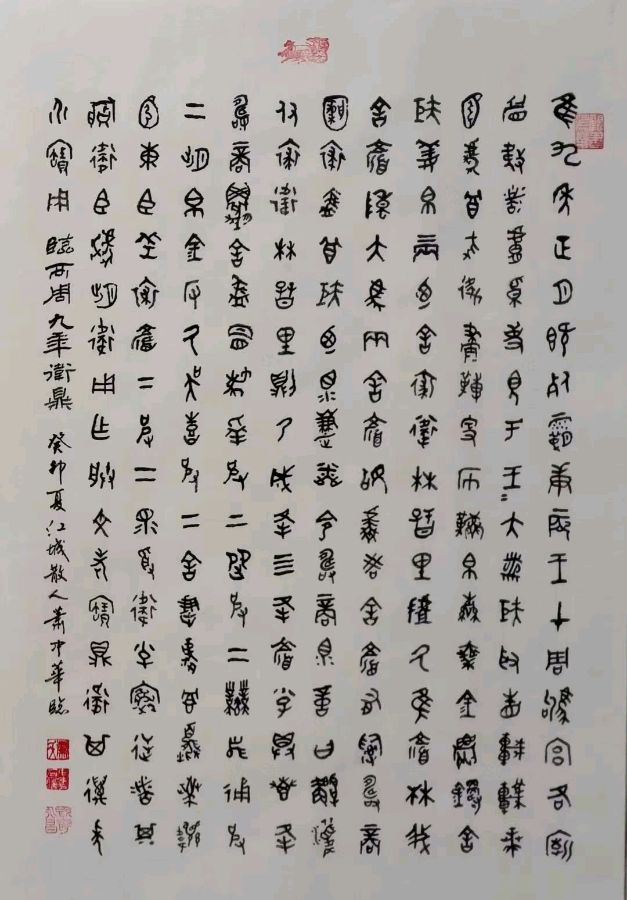 隹九年正月既死霸庚辰王才周駒宮各廟
眉敖者膚為吏見于王王大黹矩取省車
虎冟帛轡乘金舍
矩姜帛三兩乃舍裘衛林𦣞里𠭯厥隹顏林我
舍顏陳大馬兩舍顏姒虡㕡舍顏有司壽商
貉裘盠冟矩乃眔濂粦令壽商眔啻曰顜履
付裘衛林𦣞里則乃成夆四夆顏小子具叀夆
壽商舍盠冒梯羝皮二皮二業舄俑皮
二朏帛金一反厥吳喜皮二舍濂虡冟
東臣羔裘顏下皮二眔受衛小子逆者其
衛臣虣朏衛用乍朕文考寶鼎衛其萬年
永寶用 臨西周九年衛鼎 癸卯夏江城散人蕭中華臨